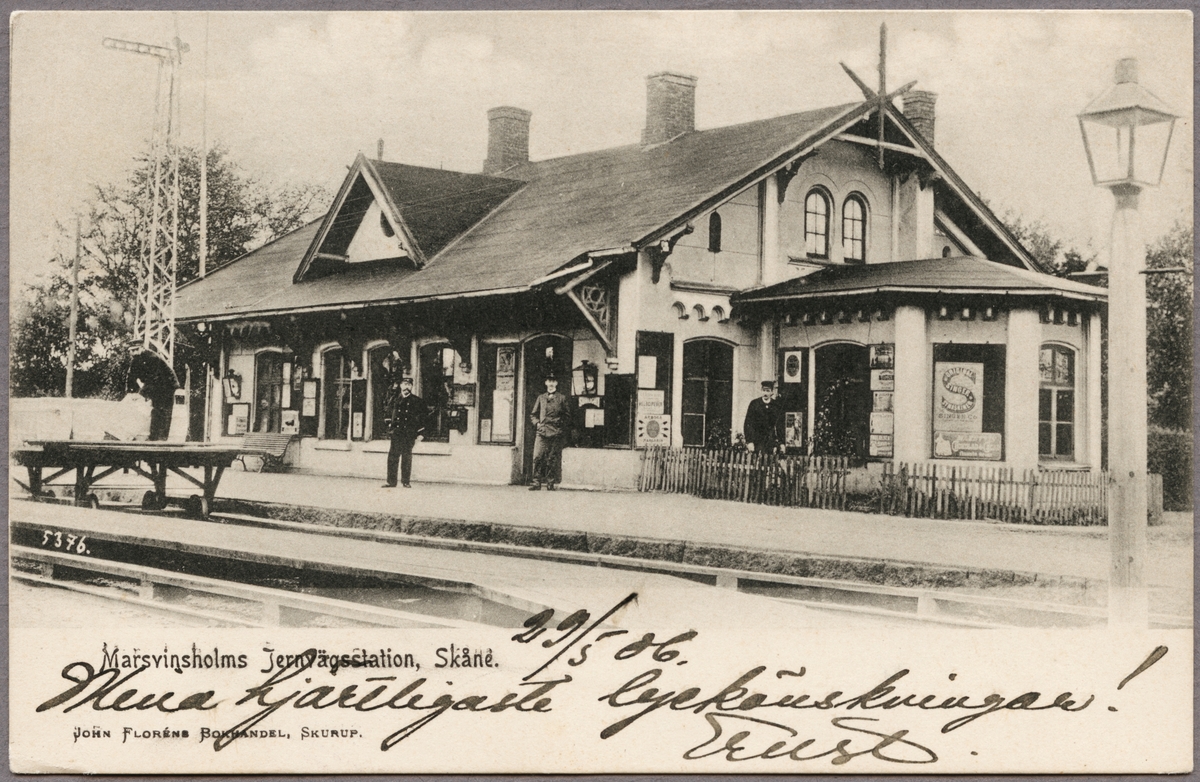 ORIGINAL
SINGER
5376.
29/5 06.
Marsvinsholms Jernvägsstation, Skåne.
Mina hjärtligaste lyckönskningar!
JOHN FLORÉNS BOKHANDEL, SKURUP.
Ernst.